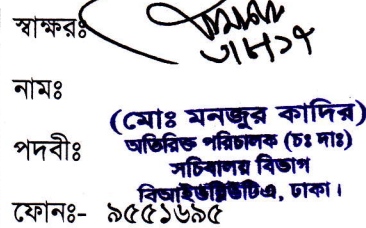 স্বাক্ষরঃ
নামঃ
(মোঃ মনজুর কাদির)
পদবীঃ
অতিরিক্ত পরিচালক (চঃ দাঃ)
সচিবালয় বিভাগ
বিআইডব্লিউটিএ, ঢাকা।
ফোনঃ- ৯৫৫১৬৯৫